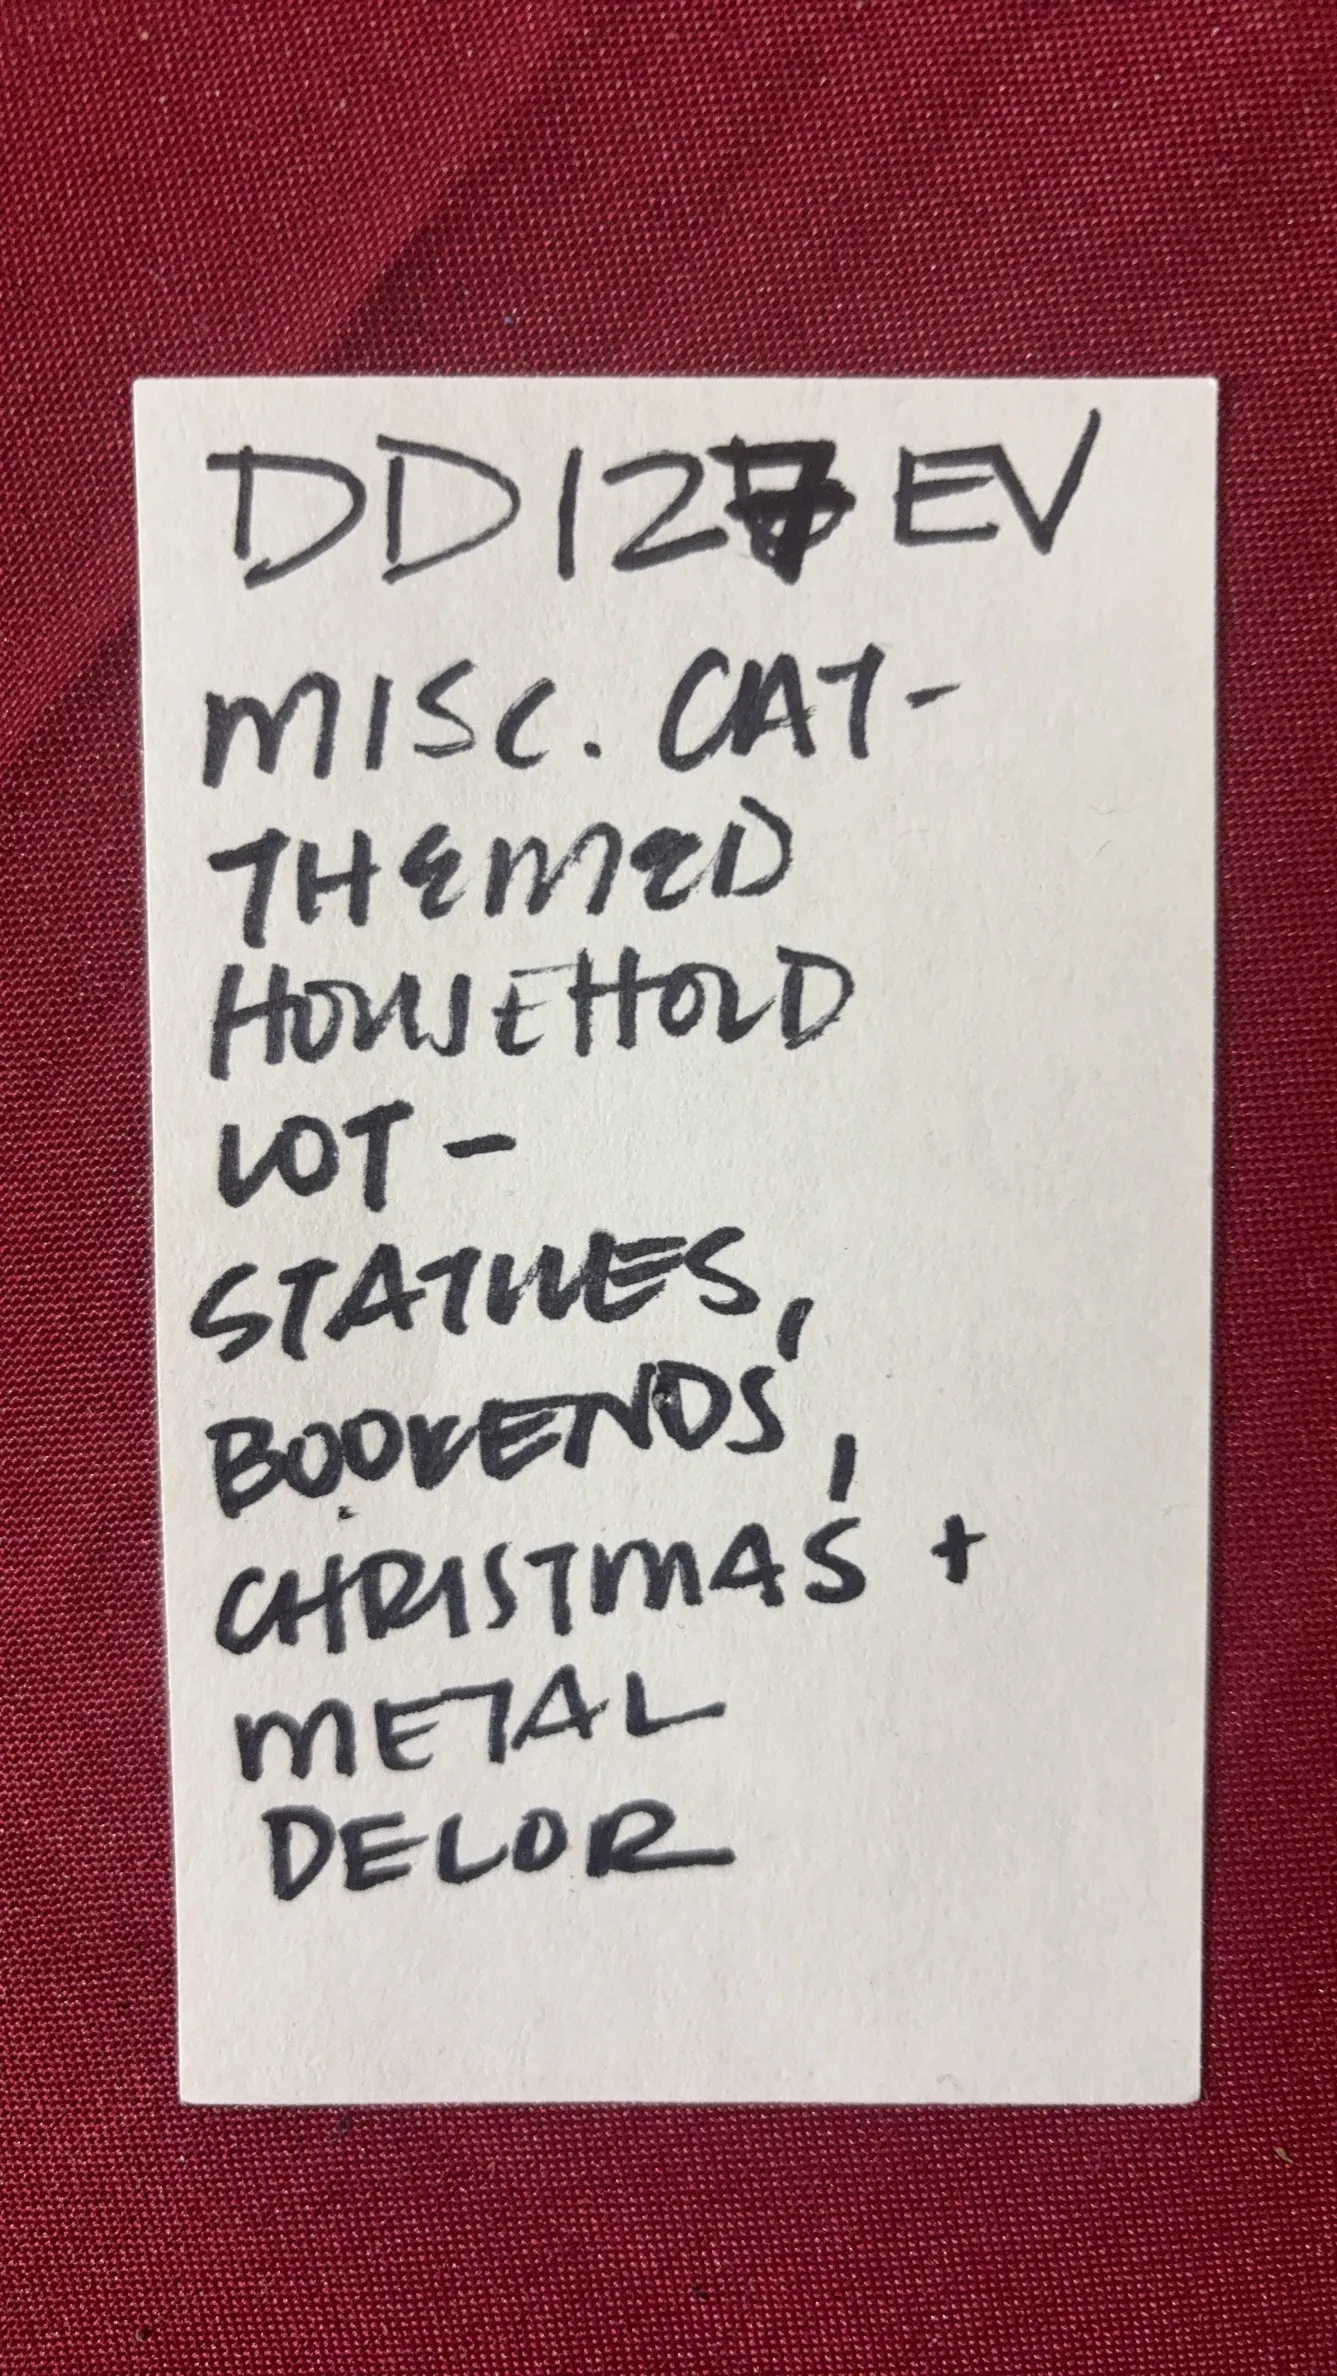 DD127EV
MISC. CAT-
THEMED
HOUSEHOLD
LOT -
STATUES,
BOOKENDS,
CHRISTMAS +
METAL
DECOR